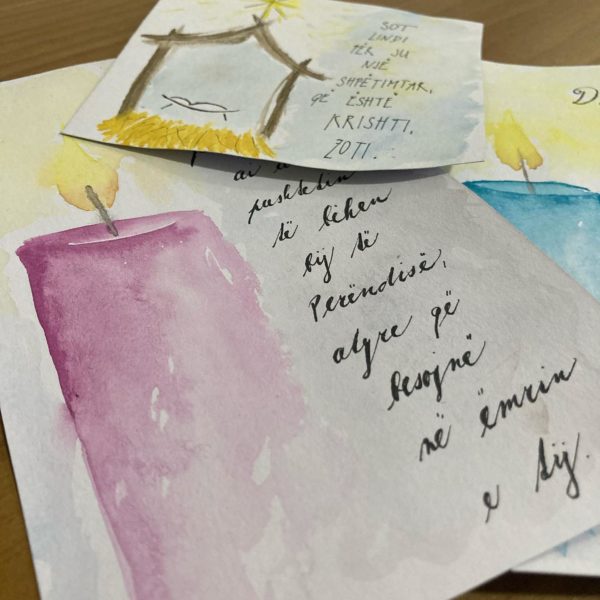 SOT
LINDI
PËR JU
NJË
SHPËTIMTAR,
QË ËSHTË
KRISHTI,
ZOTI.
pushtetin
të bëhen
bij të
Perëndisë,
atyre që
besojnë
në ëmrin
e tij.
D